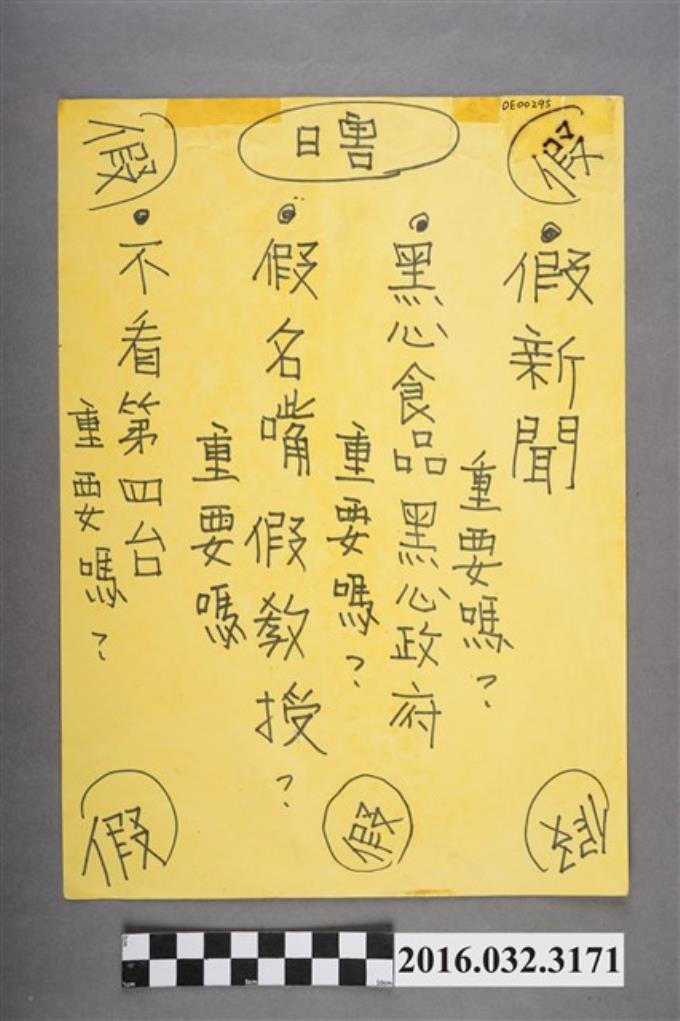 DE00295
假
瞎
假
•假新聞
重要嗎?
•黑心食品黑心政府
重要嗎?
•假名嘴假教授?
重要嗎
•不看第四台
重要嗎?
假
假
假
2016.032.3171